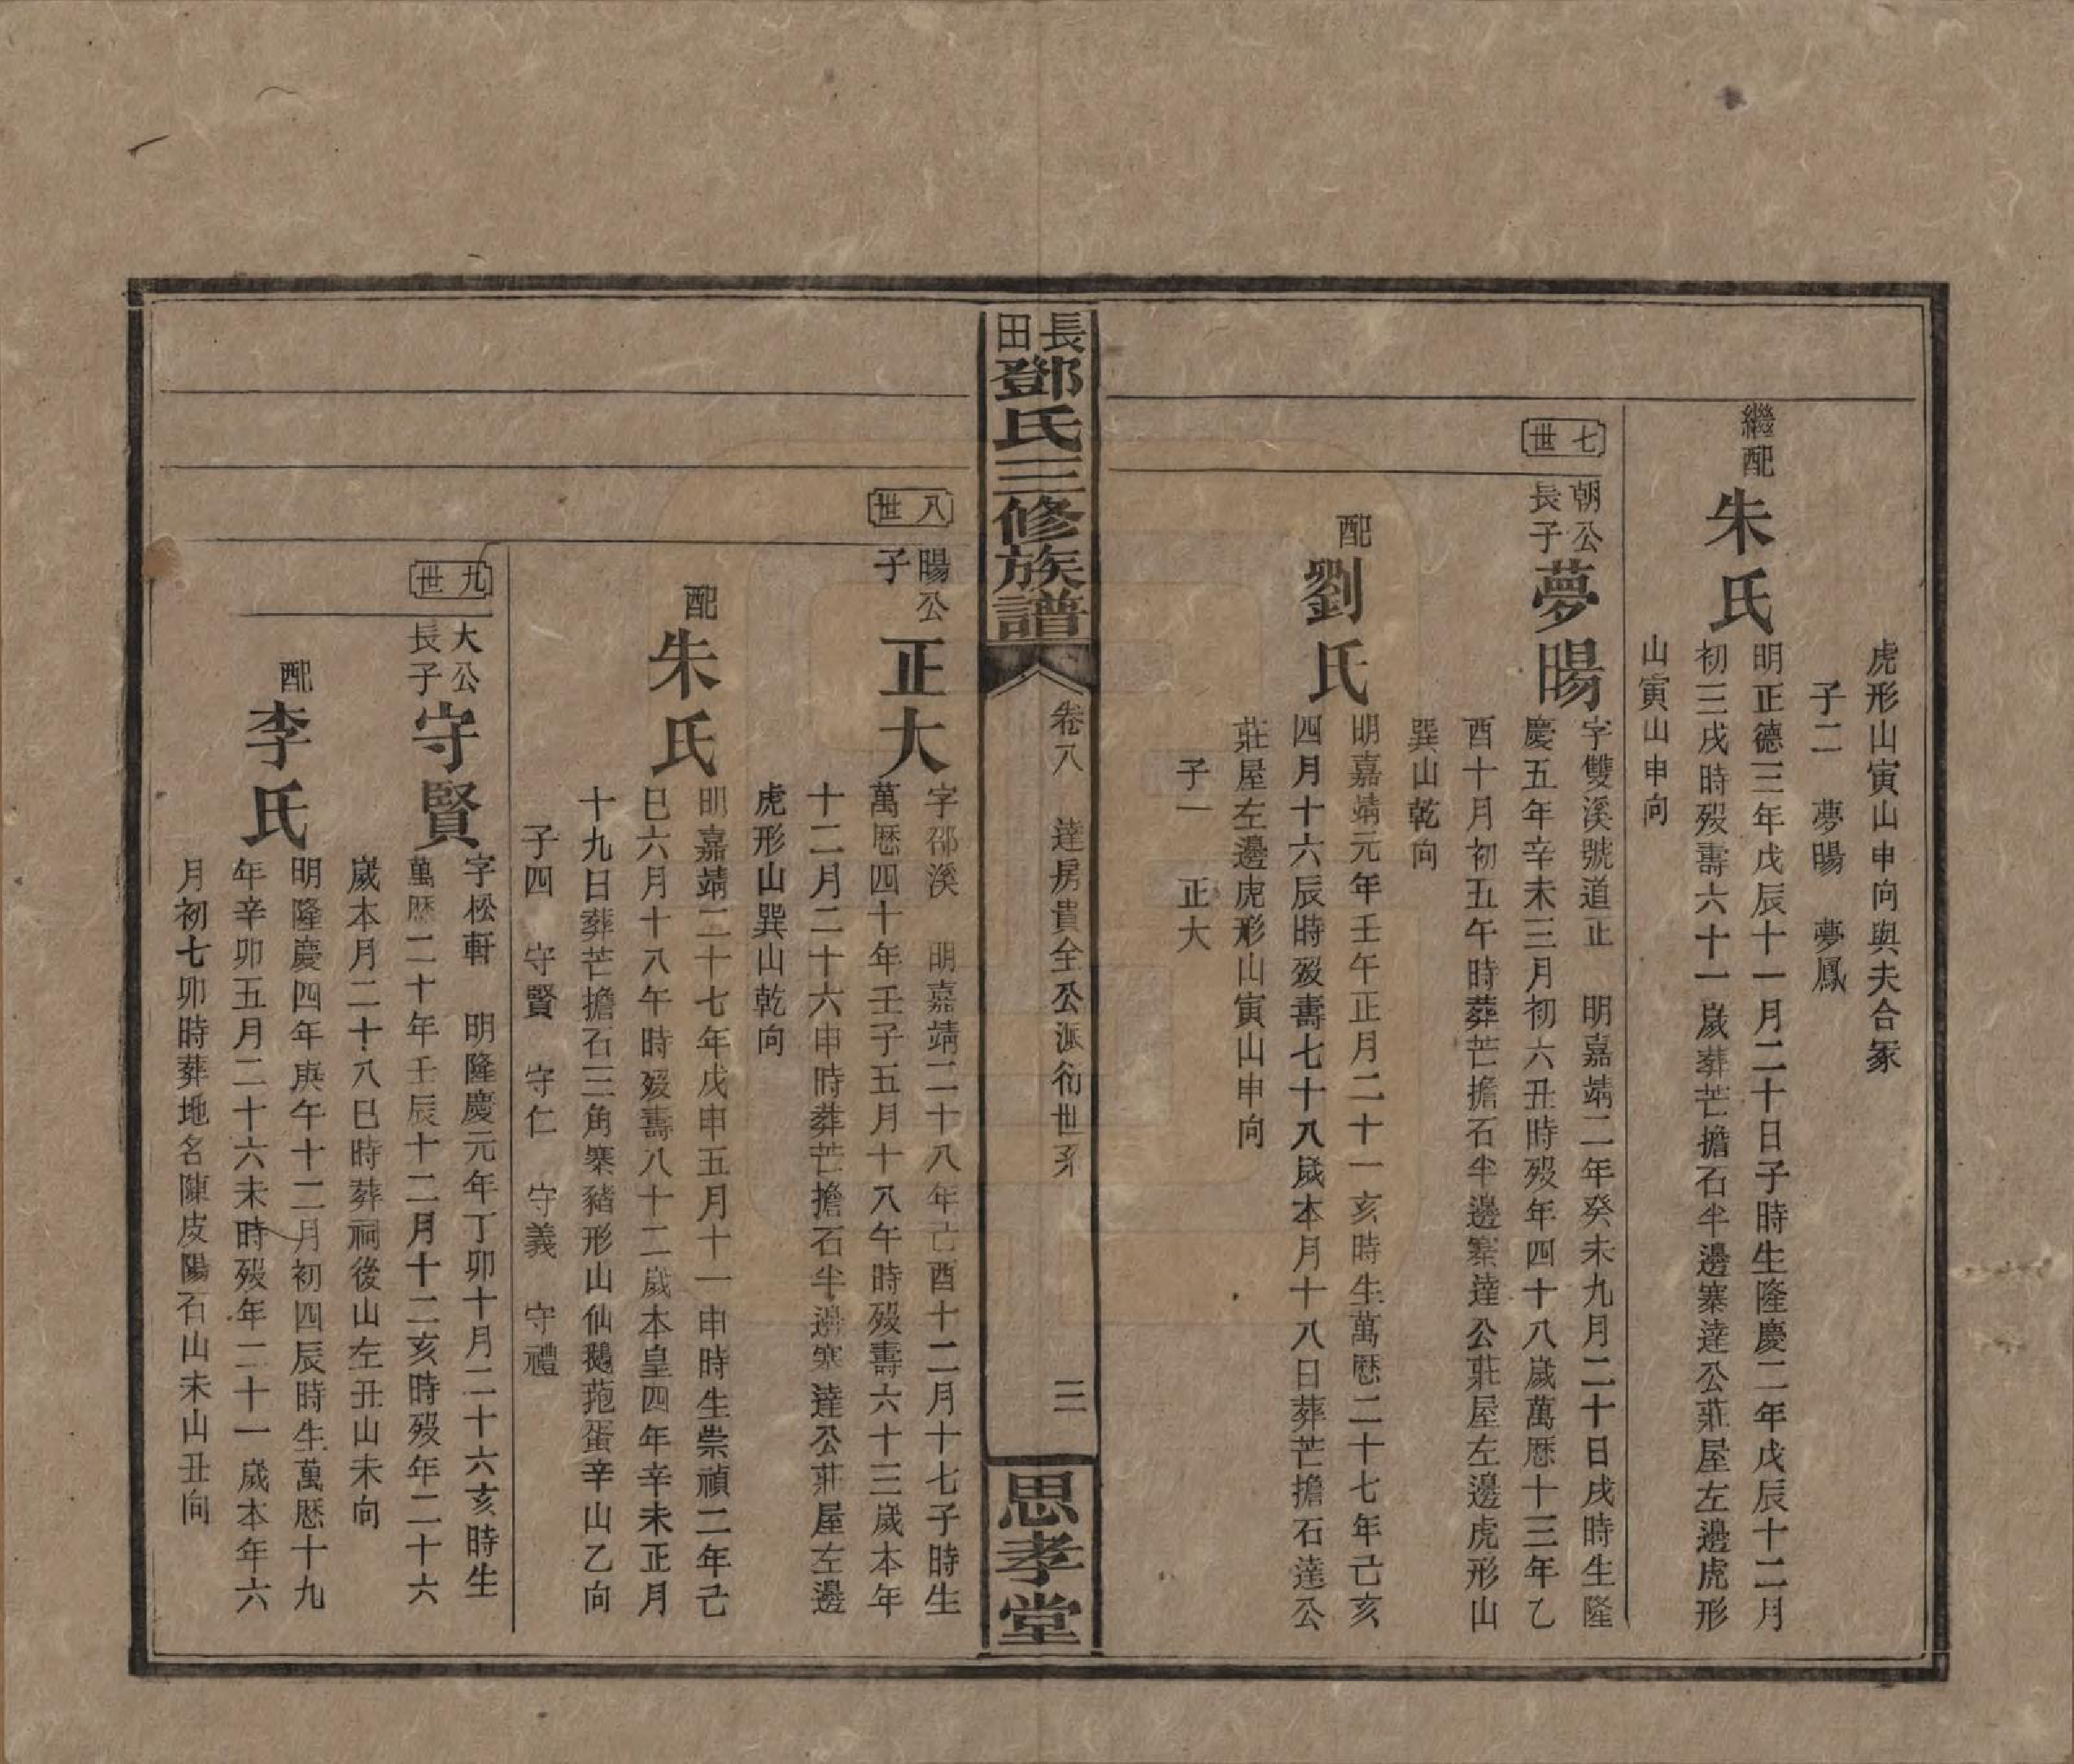 虎形山寅山申向與夫合冢
子二　夢暘　夢鳳
繼配
朱氏
明正德三年戊辰十一月二十日子時生隆慶二年戊辰十二月
初三戌時歿壽六十一歲葬芒擔石半邊寨達公莊屋左邊虎形
山寅山申向
七世
朝公
長子
夢暘
字雙溪號道正　明嘉靖二年癸未九月二十日戌時生隆
慶五年辛未三月初六丑時歿年四十八歲萬歷十三年乙
酉十月初五午時葬芒擔石半邊寨達公莊屋左邊虎形山
巽山乾向
配
劉氏
明嘉靖元年壬午正月二十一亥時生萬歷二十七年己亥
四月十六辰時歿壽七十八歲本月十八日葬芒擔石達公
莊屋左邊虎形山寅山申向
子一　正大
長田
鄧氏三修族譜
卷八　達房貴全公派衍世系
三
思孝堂
八世
暘公
子
正大
字邵溪　明嘉靖二十八年己酉十二月十七子時生
萬歷四十年壬子五月十八午時歿壽六十三歲本年
十二月二十六申時葬芒擔石半邊寨達公莊屋左邊
虎形山巽山乾向
配
朱氏
明嘉靖二十七年戊申五月十一申時生崇禎二年己
巳六月十八午時歿壽八十二歲本皇四年辛未正月
十九日葬芒擔石三角寨豬形山仙鵝菢蛋辛山乙向
子四　守賢　守仁　守義　守禮
九世
大公
長子
守賢
字松軒　明隆慶元年丁卯十月二十六亥時生
萬歷二十年壬辰十二月十二亥時歿年二十六
歲本月二十八巳時葬祠後山左丑山未向
配
李氏
明隆慶四年庚午十二月初四辰時生萬歷十九
年辛卯五月二十六未時歿年二十一歲本年六
月初七卯時葬地名陳皮陽石山未山丑向